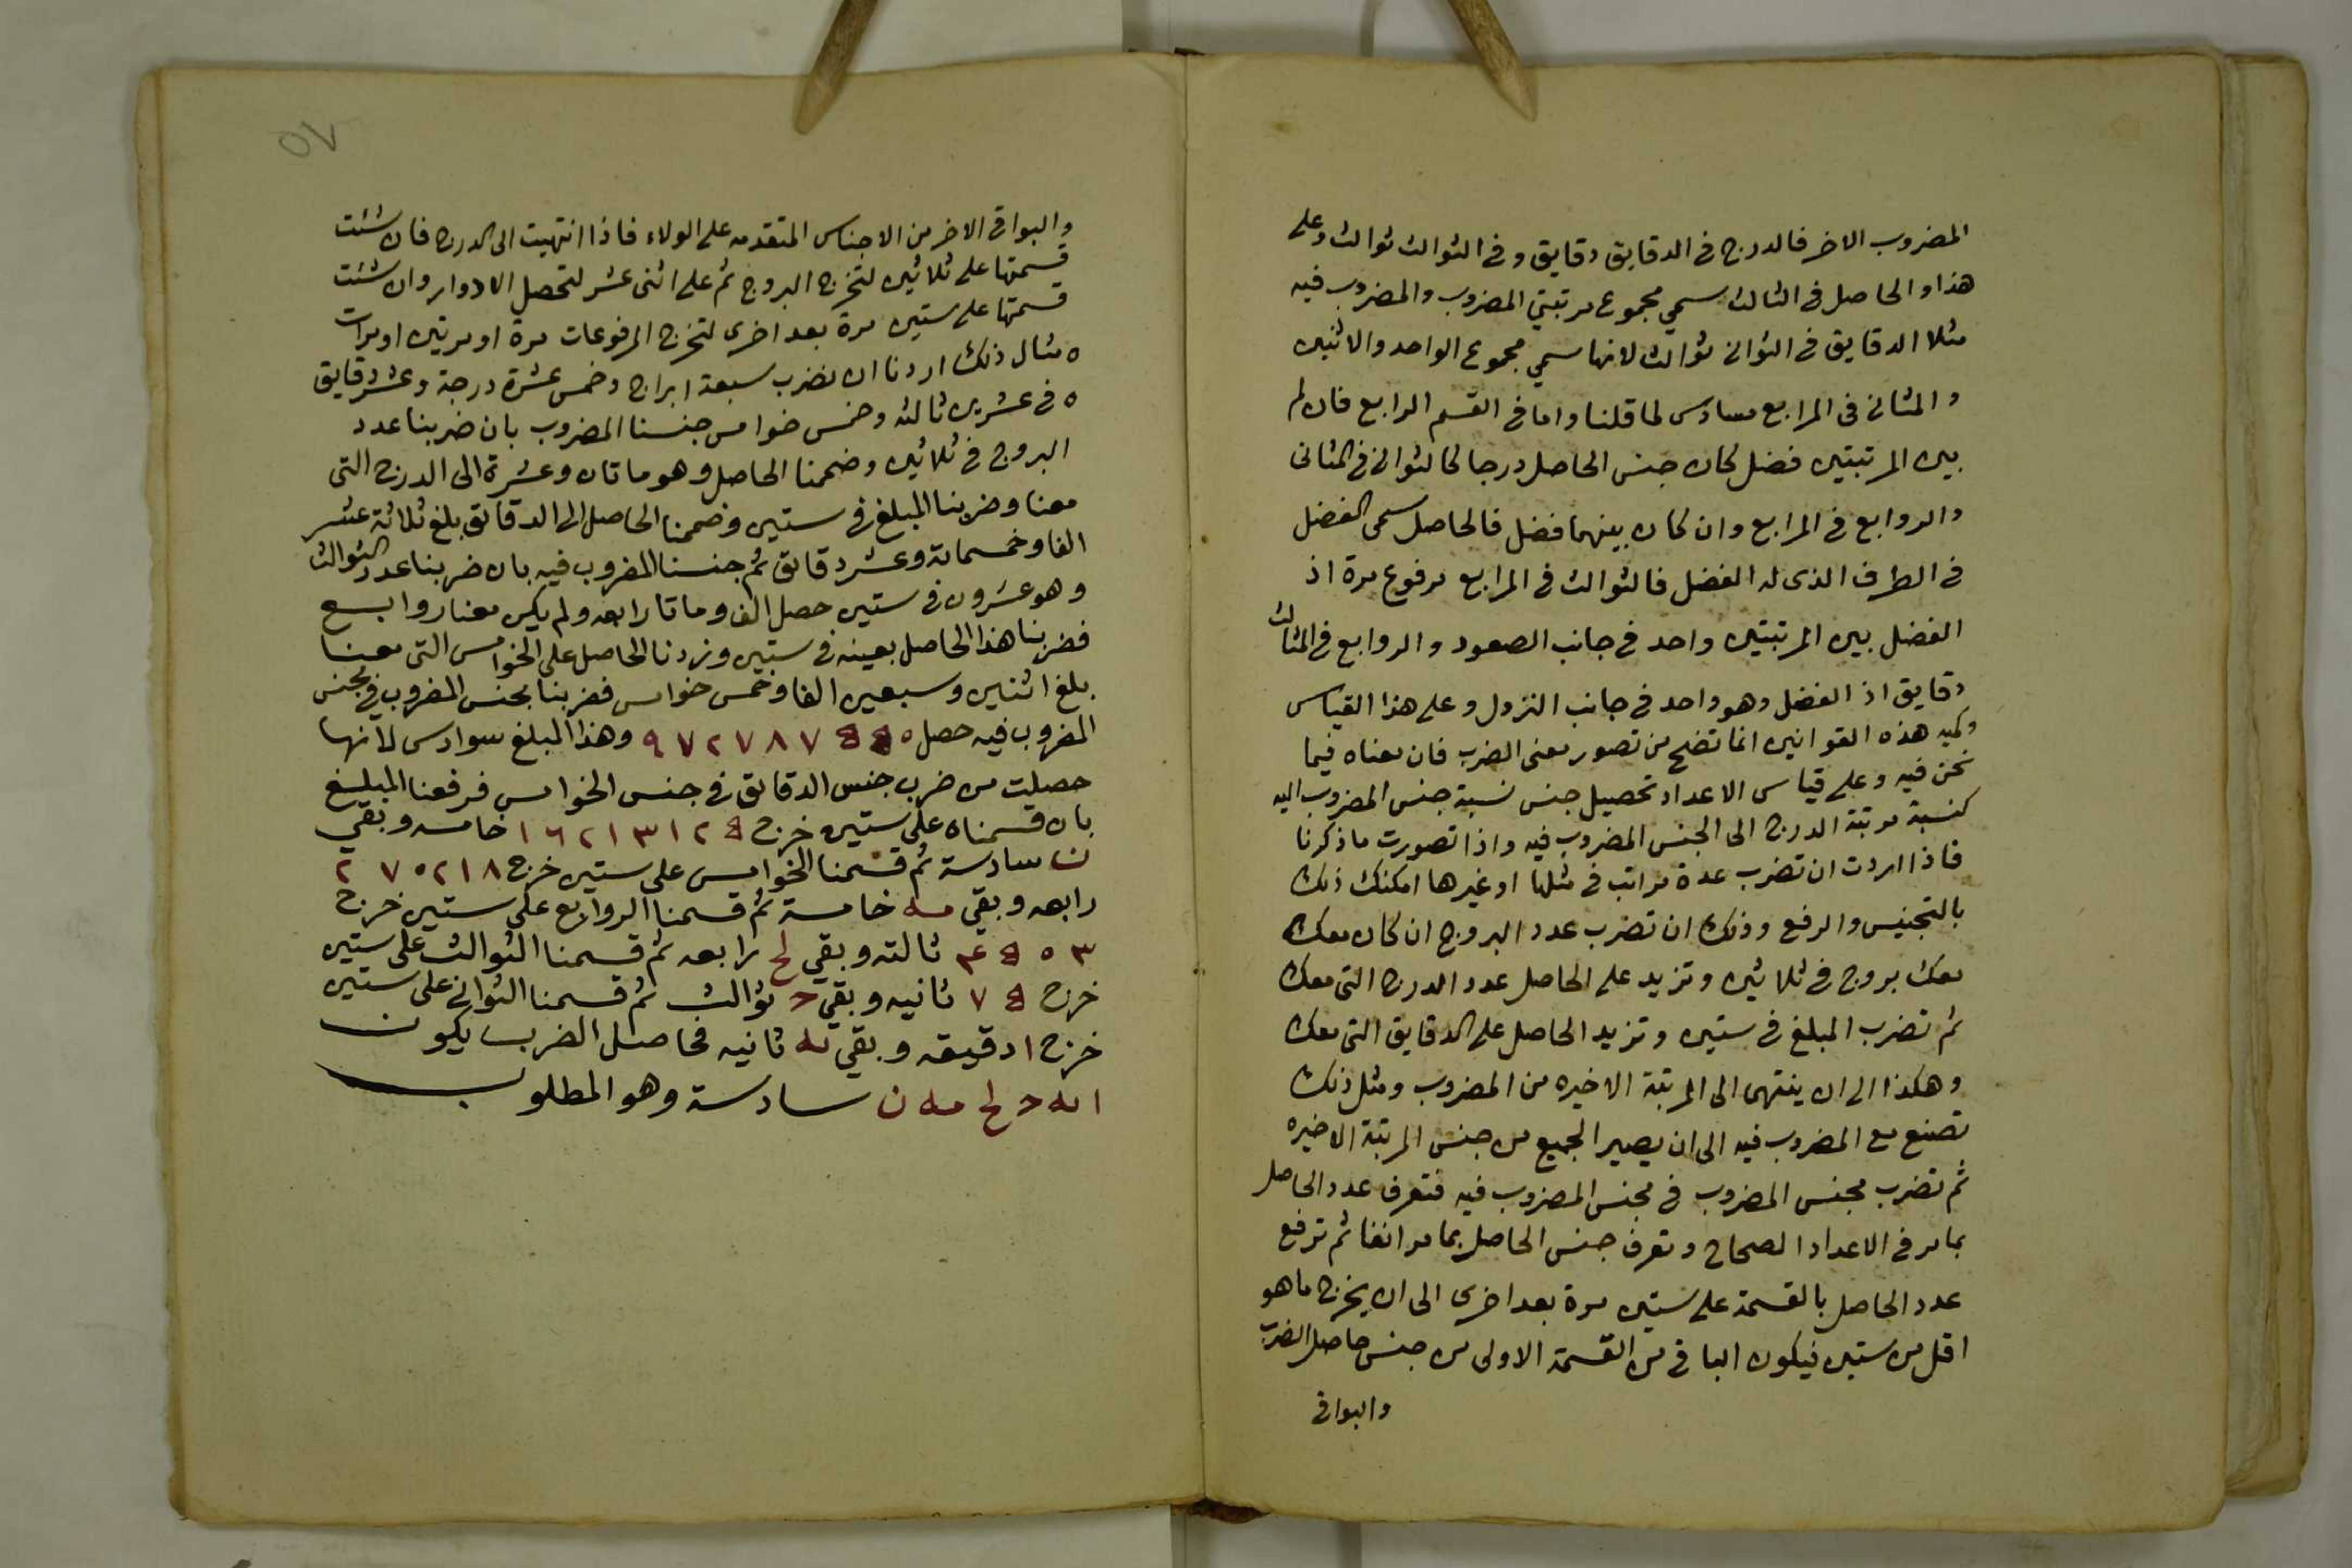 المضروب الاخر فالدرج فى الدقايق دقايق و فى الثوالث ثوالث وعلى
هذا و الحاصل فى الثالث سمي مجموع مرتبتي المضروب والمضروب فيه
مثلا الدقايق فى الثوانى ثوالث لانها سمي مجموع الواحد والاثنين
و المثانى فى المرابع مسادس لما قلنا واما فى القسم الرابع فان لم
بين المرتبتين فضل كان جنس الحاصل درجا كالثوانى فى المثانى
والروابع فى المرابع وان كان بينهما فضل فالحاصل سمى الفضل
فى الطرف الذى له الفضل فالثوالث فى المرابع مرفوع مرة اذ
الفضل بين المرتبتين واحد فى جانب الصعود و الروابع فى المثالث
دقايق اذ الفضل وهو واحد فى جانب النزول و على هذا القياس
ولميه هذه القوانين انما تضح من تصور معنى الضرب فان معناه فيما
نحن فيه وعلى قياس الاعداد تحصيل جنس نسبة جنس المضروب اليه
كنسبة مرتبة الدرج الى الجنس المضروب فيه واذا تصورت ما ذكرنا
فاذا اردت ان تضرب عدة مراتب فى مثلها او غيرها امكنك ذلك
بالتجنيس والرفع وذلك ان تضرب عدد البروج ان كان معك
معك بروج فى ثلاثين وتزيد على الحاصل عدد الدرج التى معك
ثم تضرب المبلغ فى ستين وتزيد الحاصل على الدقايق التى معك
وهكذا الى ان ينتهى الى المرتبة الاخيره من المضروب ومثل ذلك
تصنع مع المضروب فيه الى ان يصير الجميع من جنس المرتبة الاخيره
ثم تضرب مجنس المضروب فى مجنس المضروب فيه فتعرف عدد الحاصل
بما مر فى الاعداد الصحاح وتعرف جنس الحاصل بما مر انفا ثم ترفع
عدد الحاصل بالقسمة على ستين مرة بعد اخرى الى ان يخرج ما هو
اقل من ستين فيكون الباقى من القسمة الاولى من جنس حاصل الضرب
والبواقى
٥٧
والبواقى الاخر من الاجناس المتقدمه على الولاء فاذا انتهيت الى الدرج فان شئت
قسمتها على ثلاثين لتخرج البروج ثم على اثنى عشر لتحصل الادوار وان شئت
قسمتها على ستين مرة بعد اخرى لتخرج المرفوعات مرة او مرتين او مرات
ه مثال ذلك اردنا ان نضرب سبعة ابراج وخمس عشرة درجة وعشر دقايق
ه فى عشرين ثالثه وخمس خوامس جنسنا المضروب بان ضربنا عدد
البروج فى ثلاثين وضممنا الحاصل وهو ماتان وعشرة الى الدرج التى
معنا وضربنا المبلغ فى ستين وضممنا الحاصل الى الدقائق بلغ ثلاثة عشر
الفا وخمسمائة وعشر دقائق ثم جنسنا المضروب فيه بان ضربنا عدد الثوالث
وهو عشرون فى ستين حصل الف وماتا رابعه ولم يكن معنا روابع
فضربنا هذا الحاصل بعينه فى ستين وزدنا الحاصل على الخوامس التى معنا
بلغ اثنين وسبعين الفا وخمس خوامس فضربنا مجنس المضروب فى مجنس
المضروب فيه حصل ٩٧٢٧٨٧٥٥٠ وهذا المبلغ سوادس لانها
حصلت من ضرب جنس الدقايق فى جنس الخوامس فرفعنا المبلغ
بان قسمناه على ستين خرج ١٦٢١٣١٢٥ خامسه وبقي
ن سادسة ثم قسمنا الخوامس على ستين خرج ٢٧٠٢١٨
رابعه وبقي مه خامسة ثم قسمنا الروابع على ستين خرج
٤٥٠٣ ثالثه وبقي لح رابعه ثم قسمنا الثوالث على ستين
خرج ٧٥ ثانيه وبقي ج ثوالث ثم قسمنا الثوانى على ستين
خرج ا دقيقه وبقي يه ثانيه فحاصل الضرب يكون
ا يه ج لح مه ن سادسة وهو المطلوب